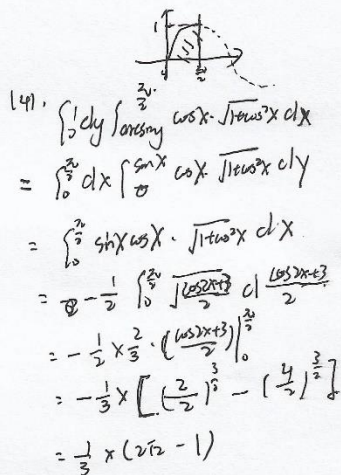 1
0
π/2
(4). ∫_0^1 dy ∫_{arcsiny}^{π/2} cosx·√(1+cos²x) dx
= ∫_0^{π/2} dx ∫_0^{sinx} cosx·√(1+cos²x) dy
= ∫_0^{π/2} sinxcosx·√(1+cos²x) dx
= -1/2 ∫_0^{π/2} √((cos2x+3)/2) d (cos2x+3)/2
= -1/2 × 2/3·((cos2x+3)/2)|_0^{π/2}
= -1/3 × [(2/2)^{3/2} - (4/2)^{3/2}]
= 1/3 × (2√2 - 1)